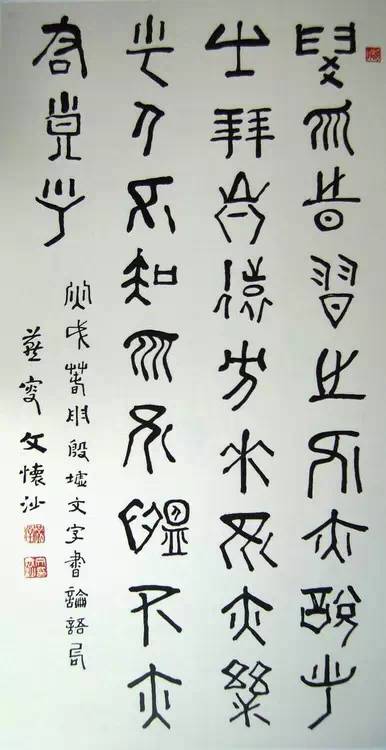 學而時習之不亦說乎
有朋自遠方來不亦樂
乎人不知而不慍不亦
君子乎
戌春用殷墟文字書論語句
燕叟文懷沙